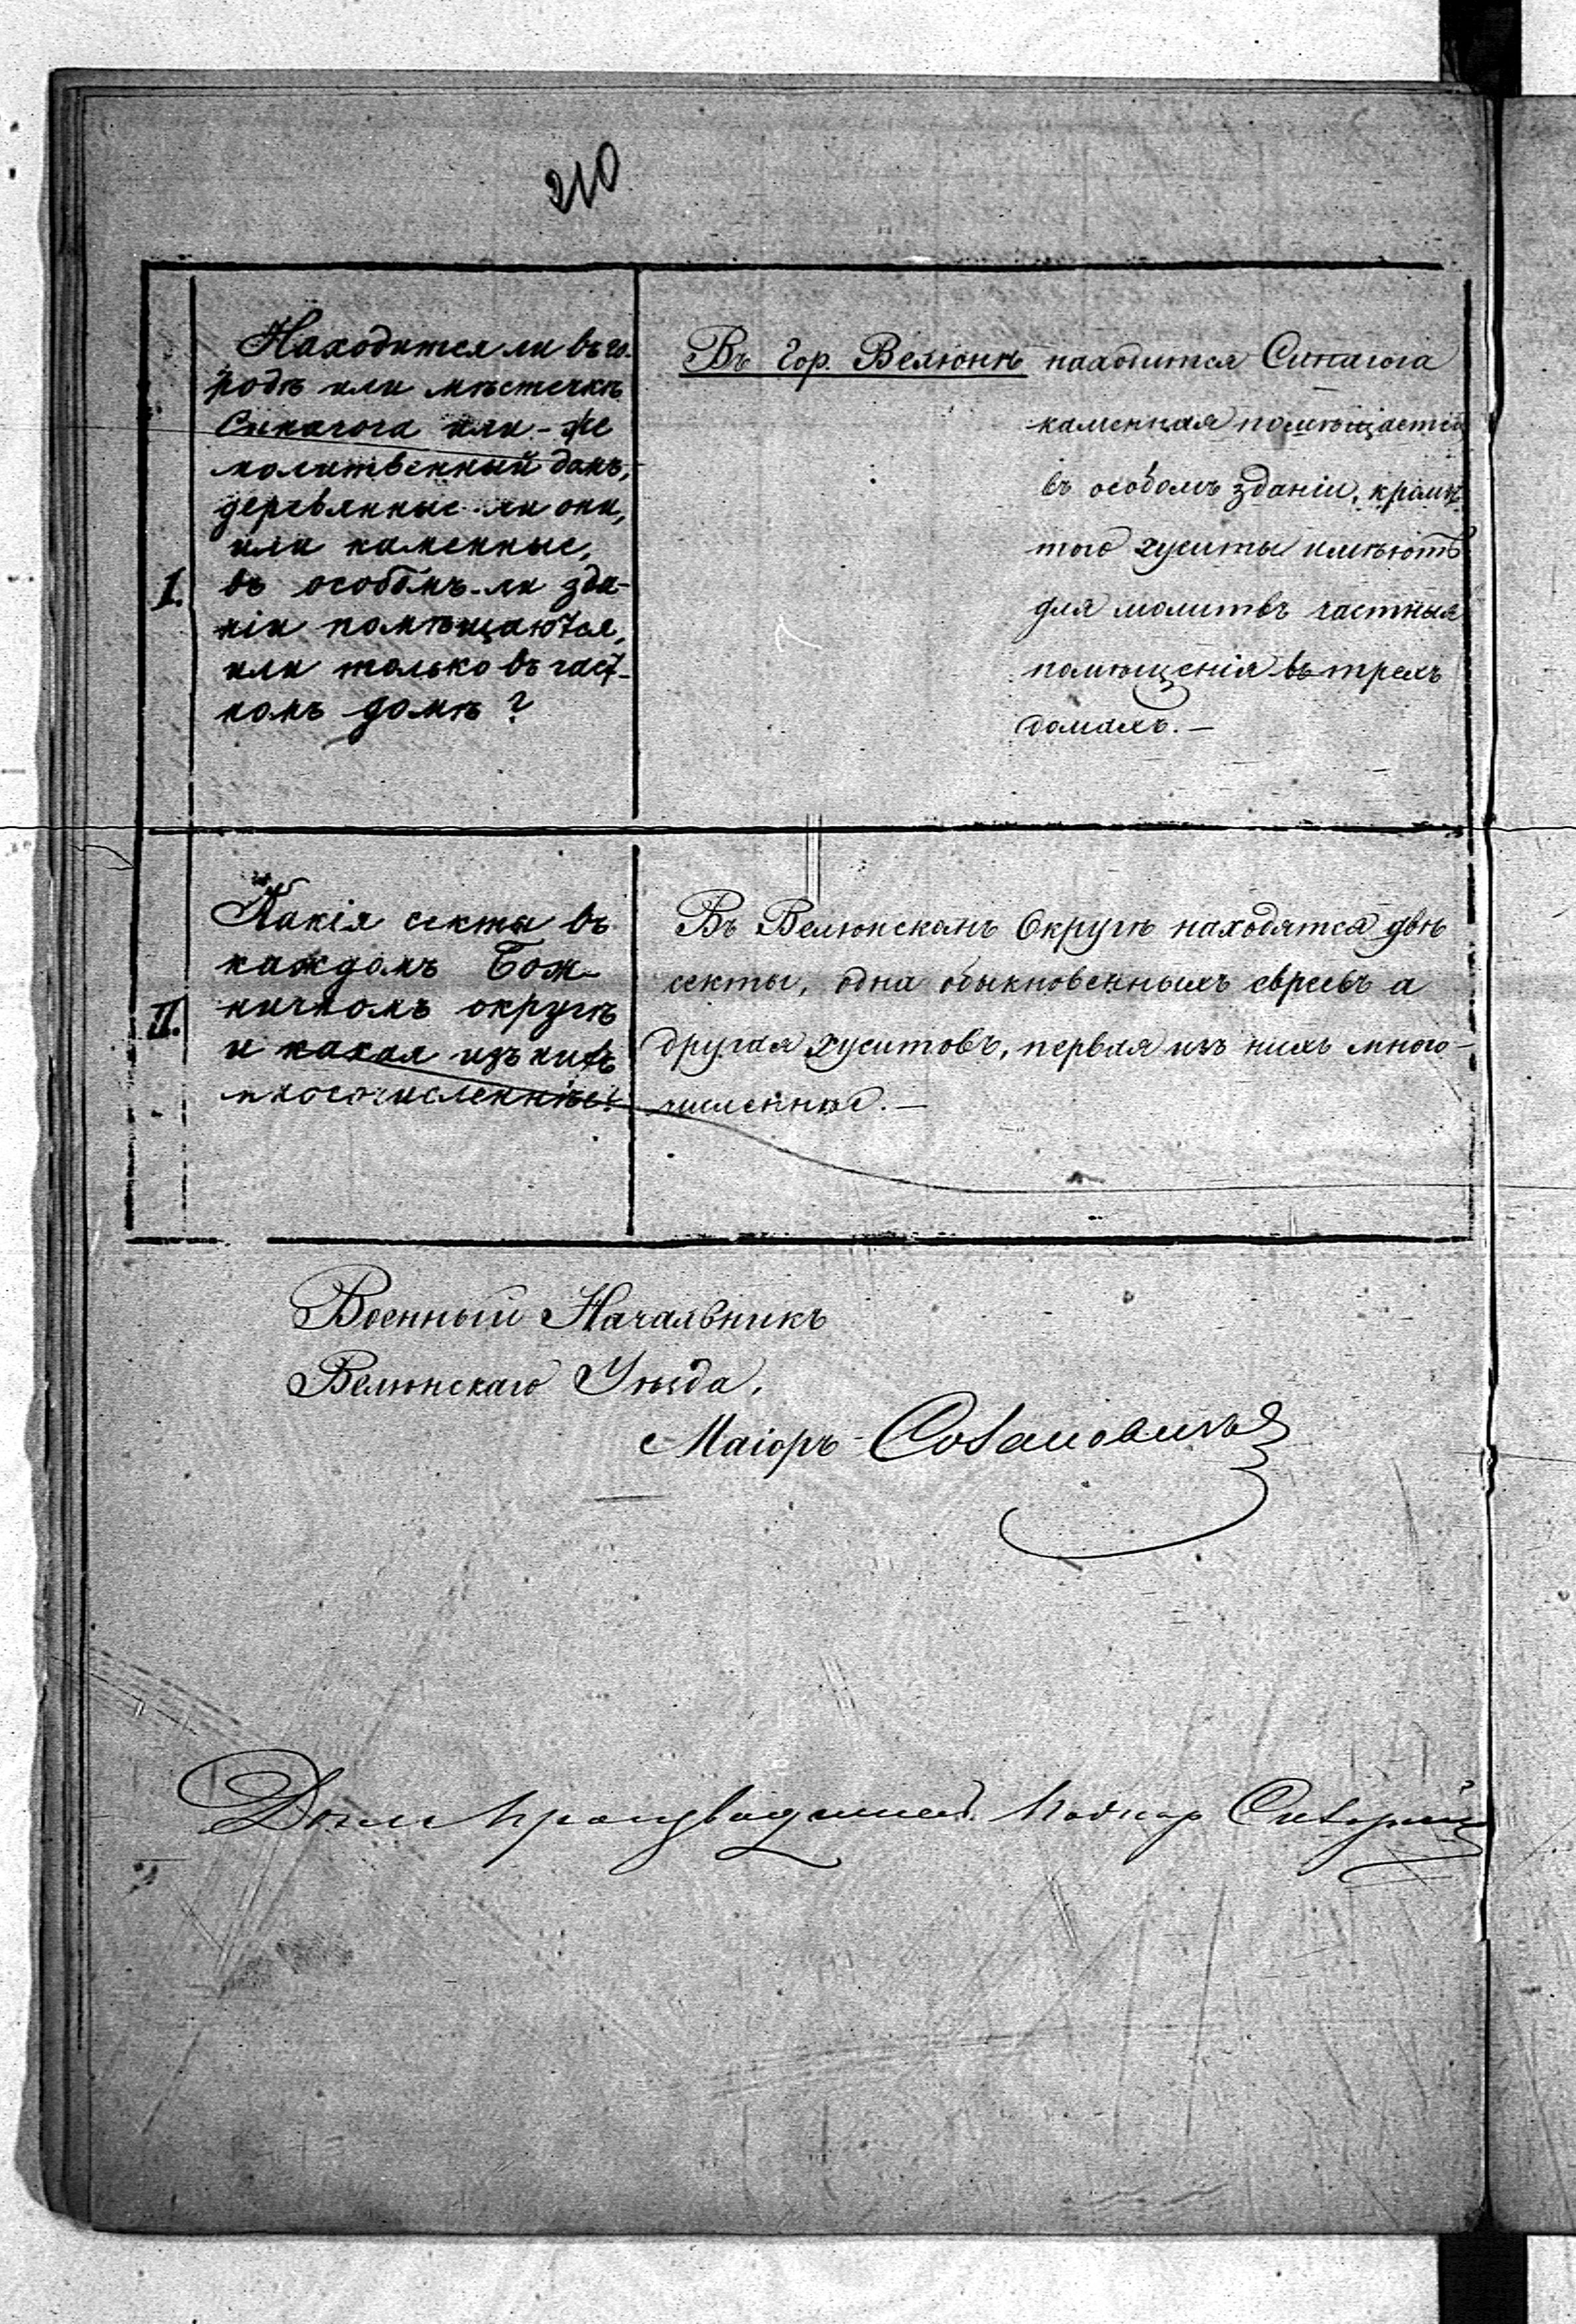 210
I.
Находится ли въ го-
родѣ или мѣстечкѣ
Синагога или-же
молитвенный домъ,
деревянные ли они,
или каменные,
въ особомъ-ли зда-
ніи помѣщаются,
или только въ част-
номъ домѣ?
Въ Гор. Велюнѣ находится Синагога
каменная помѣщается
въ особомъ зданіи, кромѣ
того хуситы имѣютъ
для молитвъ частныя
помѣщенія въ трехъ
домахъ.—
II.
Какія секты въ
каждомъ Бож-
ничномъ округѣ
и какая изъ нихъ
многочисленнѣе?
Въ Велюнскомъ Округѣ находятся двѣ
секты, одна обыкновенныхъ евреевъ а
другая хуситовъ, первая изъ нихъ много-
численнѣе.—
Военный Начальникъ
Велюнскаго Уѣзда,
Маіоръ
Дѣлопроизводитель